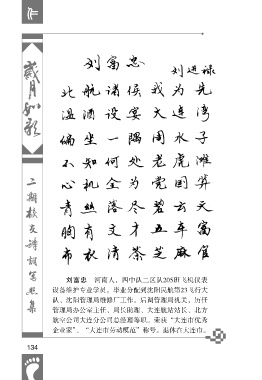 歲月如歌
二期校友诗词
集
刘富忠
刘进禄
北航诸侯我为先
温酒设宴大连湾
偏坐一隅周水子
不知何处老虎滩
心机全为党国算
青丝落尽碧云天
胸有文才五车富
布衣清茶芝麻官
刘富忠 河南人，四中队二区队205班飞机仪表
设备维护专业学员，毕业分配到沈阳民航第23飞行大
队、沈阳管理局维修厂工作，后调管理局机关，历任
管理局办公室主任、局长助理、大连航站站长、北方
航空公司大连分公司总经理等职。荣获“大连市优秀
企业家”、“大连市劳动模范”称号。退休在大连市。
134